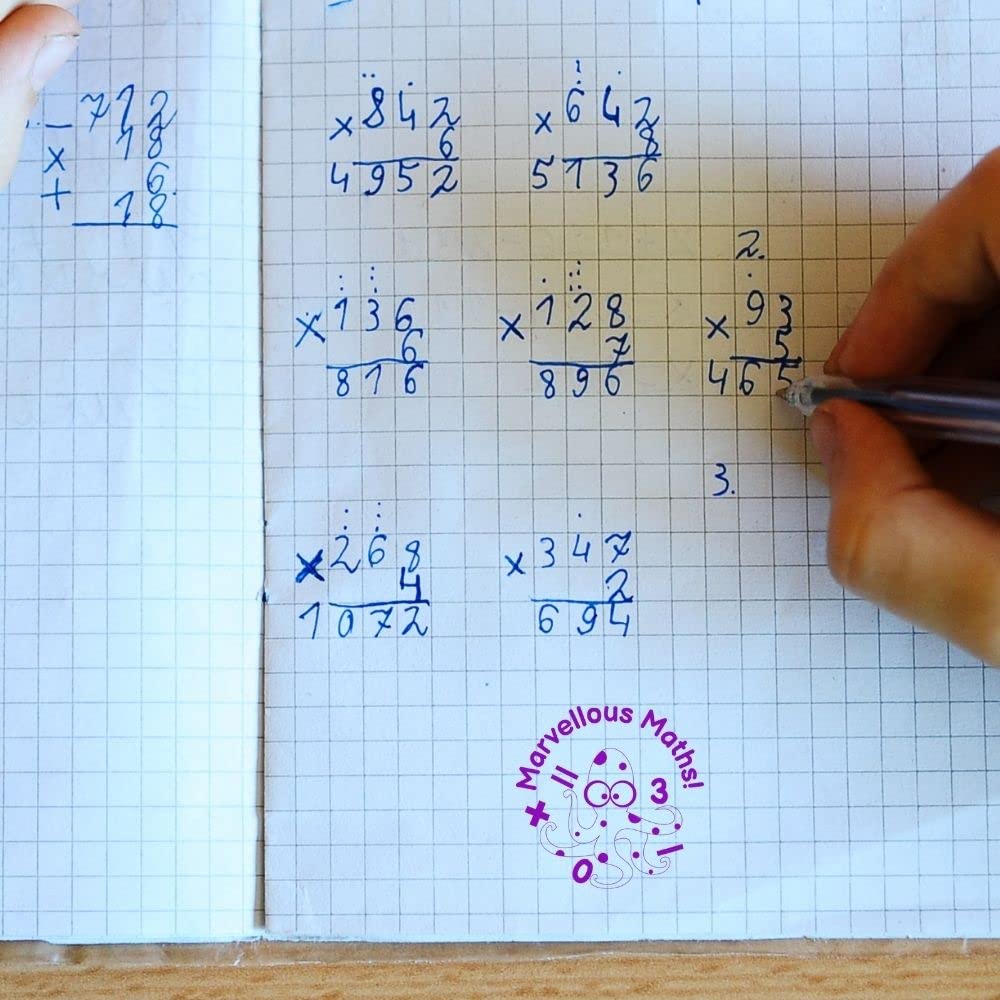 − 712
× 18
+ 6
18
× 842
6
4952
× 642
8
5136
× 136
6
816
× 128
7
896
2.
× 93
5
465
3.
× 268
4
1072
× 347
2
694
Marvellous Maths!
+ = 3 - 0